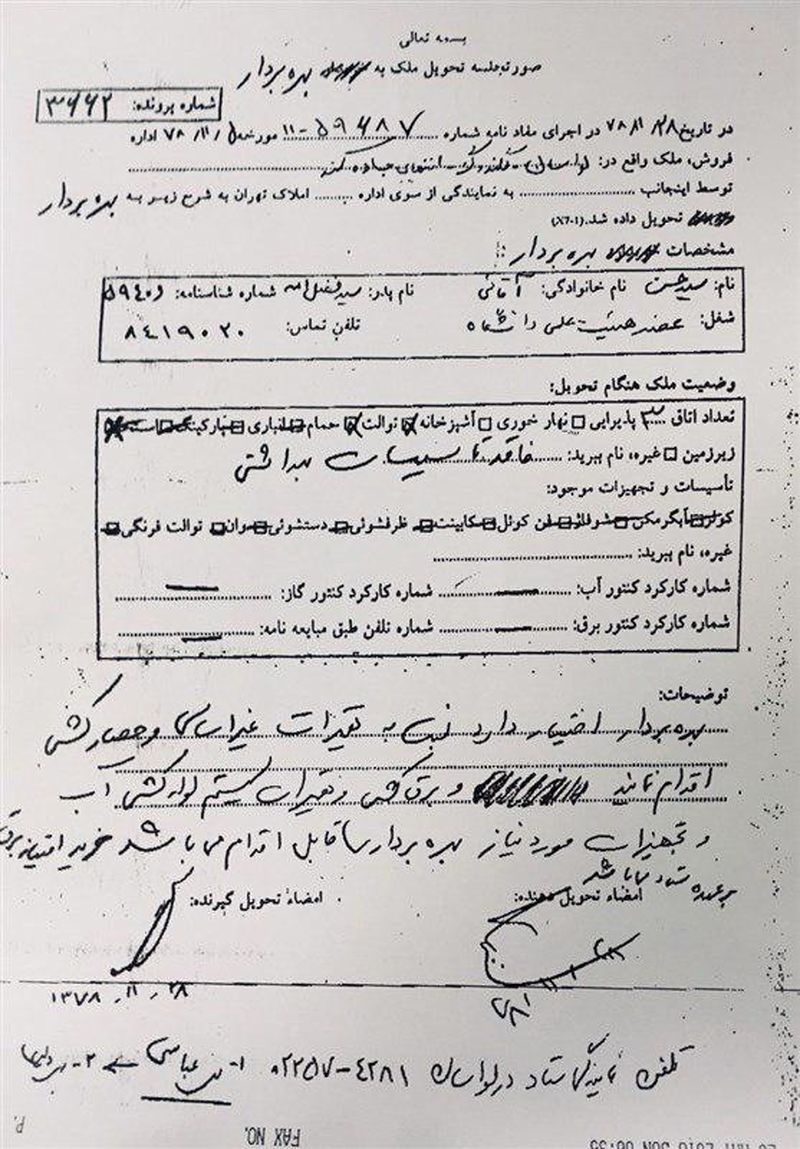 بسمه تعالی
صورتجلسه تحویل ملک به بهره بردار
شماره پرونده: ۳۶۶۲
در تاریخ ۷۸/۱۱/۲۸ در اجرای مفاد نامه شماره ۵۹۶۸۷-۱۱ مورخه ۷۸/۱۱/ اداره
فروش، ملک واقع در: لواسان - گلندوک - انتهای جاده کند
توسط اینجانب ........ به نمایندگی از سوی اداره ........ املاک تهران به شرح زیر به بهره بردار
تحویل داده شد. (X7-1)
مشخصات بهره بردار:
نام: سید حسن نام خانوادگی: آقائی نام پدر: سید فضل اله شماره شناسنامه: ۵۹۴۰۶
شغل: عضو هیئت علمی دانشگاه تلفن تماس: ۸۴۱۹۰۲۰
وضعیت ملک هنگام تحویل:
تعداد اتاق ۳ پذیرایی □ نهار خوری □ آشپزخانه توالت حمام انباری پارکینگ
زیرزمین □ غیره، نام ببرید: فاقد تاسیسات بهداشتی
تأسیسات و تجهیزات موجود:
کولر آبگرمکن شوفاژ فن کوئل کابینت ظرفشوئی دستشوئی وان توالت فرنگی
غیره، نام ببرید:
شماره کارکرد کنتور آب: — شماره کارکرد کنتور گاز: —
شماره کارکرد کنتور برق: — شماره تلفن طبق مبایعه نامه: —
توضیحات:
بهره بردار اختیار دارد نسبت به تغییرات غیر اساسی و حصارکشی
اقدام نمایند و برق کشی و تغییرات سیستم لوله کشی آب
و تجهیزات مورد نیاز بهره بردار قابل اقدام می باشد خرید امتیاز برق
بر عهده ستاد می باشد
امضاء تحویل دهنده: امضاء تحویل گیرنده:
۱۳۷۸،۱۱،۲۸
تلفن نمایندگی ستاد در لواسان ۰۲۲۵۷-۴۲۸۱ ۱- عباسی ۲-
FAX NO.
P.